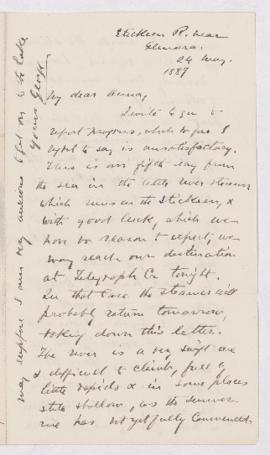 Stickeen R. near
Glenora.
24 May.
1887
My dear Anna,
I write to you to
report progress, which so far I
regret to say is unsatisfactory.
This is our fifth day from
the sea in the little river steamer
which runs on the Stickeen, &
with good luck, which we
have no reason to expect, we
may reach our destination
at Telegraph Cr tonight.
In that case the steamer will
probably return tomorrow,
taking down this letter.
The river is a very swift one
& difficult to climb, full of
little rapids & in some places
still shallow, as the summer
rise has not yet fully commenced.
may suppose I am very anxious to get on to the lake
Yours George